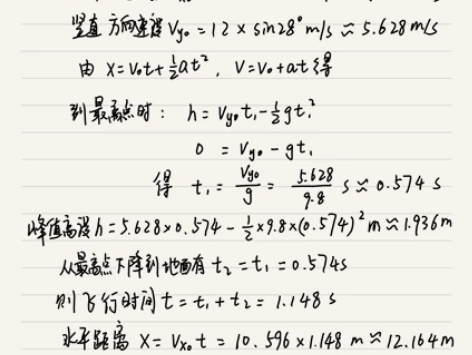 竖直方向速度 Vy₀ = 12 × sin28° m/s ≈ 5.628 m/s
由 X=V₀t+½at², V=V₀+at 得
到最高点时: h = Vy₀t₁-½gt₁²
0 = Vy₀ - gt₁
得 t₁ = Vy₀/g = 5.628/9.8 s ≈ 0.574 s
峰值高度 h=5.628×0.574 - ½×9.8×(0.574)² m ≈ 1.936m
从最高点下降到地面有 t₂=t₁=0.574s
则飞行时间 t=t₁+t₂=1.148s
水平距离 X=Vx₀t = 10.596×1.148 m≈12.164m